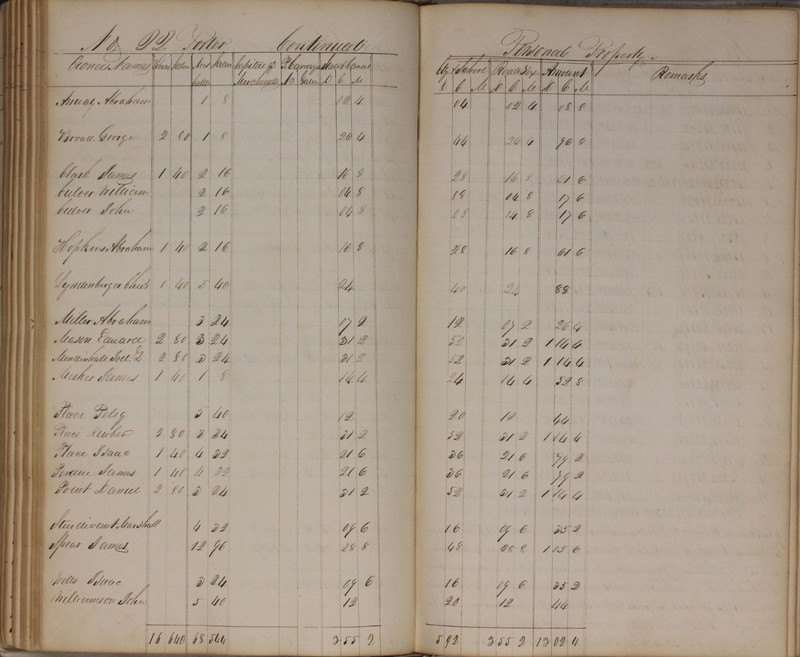 No 22 Porter Continued Personal Property
Owners Names Horses Value Neat Cattle Value Capital of Merchants Pl. Carriages No Value County Revenue D C M School D C M Road Tax D C M Amount D C M Remarks
Abraham 1 8 02 4 04 02 4 08 8
George 2 80 1 8 26 4 44 26 4 96 8
Clark James 1 40 2 16 16 8 28 16 8 61 6
Culver William 2 16 04 8 08 04 8 17 6
Culver John 2 16 04 8 08 04 8 17 6
Hopkins Abraham 1 40 2 16 16 8 28 16 8 61 6
1 40 5 40 24 40 24 88
Miller Abraham 3 24 07 2 12 07 2 26 4
Mason Edward 2 80 3 24 31 2 52 31 2 1 14 4
Mendenhall Joel 2 2 80 3 24 31 2 52 31 2 1 14 4
Meeker James 1 40 1 8 14 4 24 14 4 52 8
Place Peleg 5 40 12 20 12 44
Place Reuben 2 80 3 24 31 2 52 31 2 1 14 4
Place Isaac 1 40 4 32 21 6 36 21 6 79 2
James 1 40 4 32 21 6 36 21 6 79 2
Point Daniel 2 80 3 24 31 2 52 31 2 1 14 4
Sturdivent Marshall 4 32 09 6 16 09 6 35 2
Spear James 12 96 28 8 48 28 8 1 05 6
Wells Isaac 3 24 09 6 16 09 6 35 2
Williamson John 5 40 12 20 12 44
16 640 68 544 3 55 2 5 92 3 55 2 13 02 4